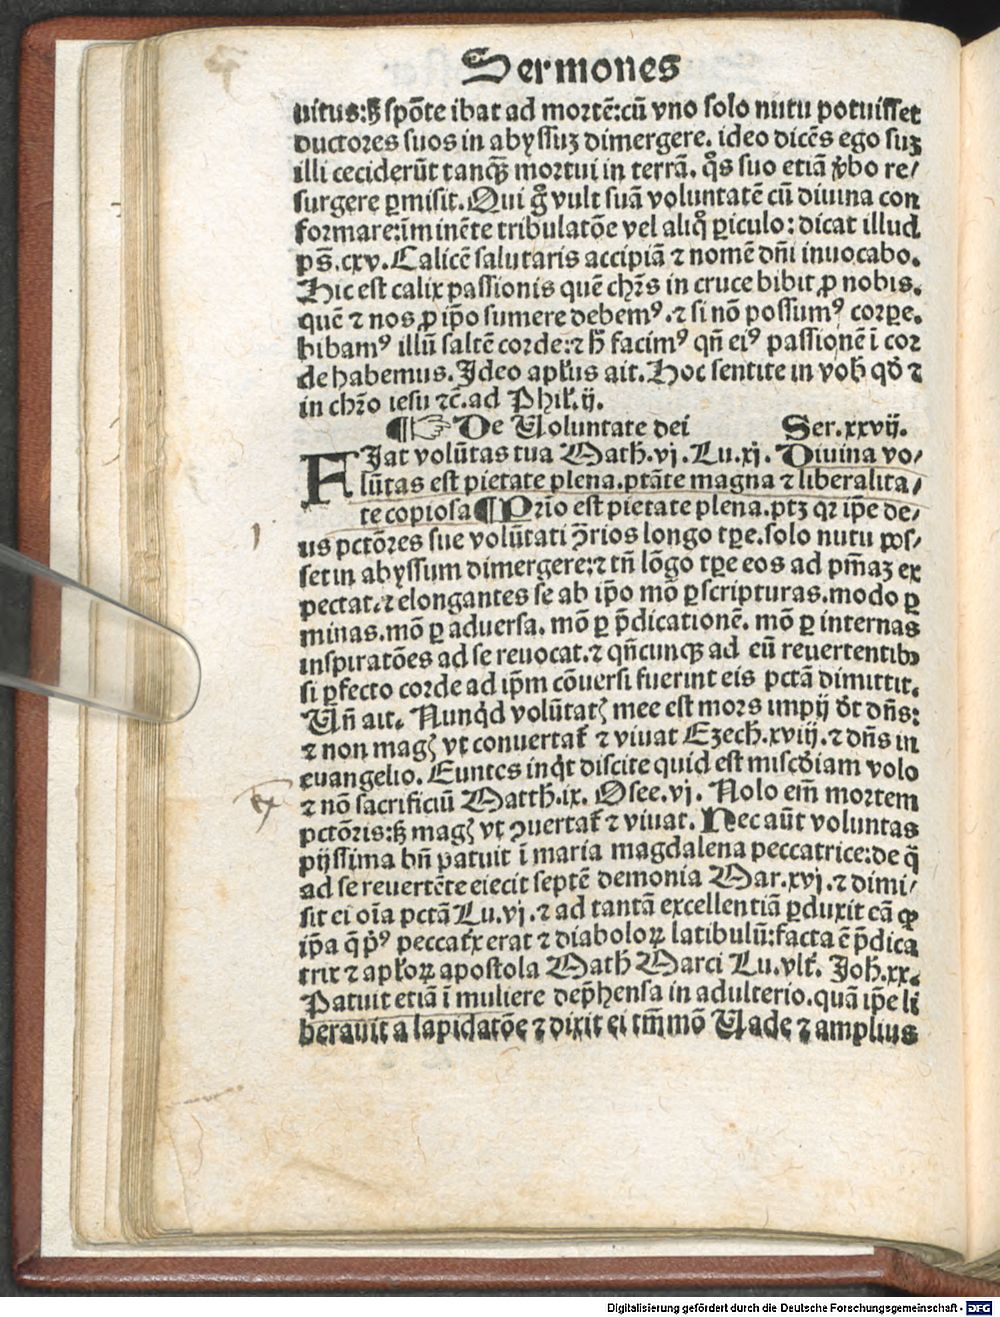 Sermones
uitus:ꝫ spōte ibat ad mortē:cū vno solo nutu potuisset
ductores suos in abyssuꝫ dimergere. ideo dicēs ego suꝫ
illi ceciderūt tanqꝫ mortui in terrā. qͦs suo etiā ꝟbo re/
surgere ꝑmisit. Qui gͦ vult suā voluntatē cū diuina con
formare:īminēte tribulatōe vel aliqͦ ꝑiculo: dicat illud
ps̄.cxv. Calicē salutaris accipiā ⁊ nomē dn̄i inuocabo.
Hic est calix passionis quē chr̄s in cruce bibit ꝓ nobis.
quē ⁊ nos ꝓ ip̄o sumere debemꝰ.⁊ si nō possumꝰ corꝑe.
bibamꝰ illū saltē corde:⁊ h̄ facimꝰ qn̄ eiꝰ passionē ī cor
de habemus. Ideo apl̓us ait. Hoc sentite in vob̄ qd̓ ⁊
in chr̄o iesu ⁊c̄.ad Phil̓.ij.
¶☞ De Uoluntate dei Ser.xxvij.
FIat volūtas tua Math̄.vj. Lu.xj. Diuina vo/
lūtas est pietate plena.ptāte magna ⁊ liberalita/
te copiosa ¶ Prīo est pietate plena.ptꝫ qr ip̄e de/
us pctōres sue volūtati ↄ̄rios longo tꝑe.solo nutu pos/
set in abyssum dimergere:⁊ tn̄ lōgo tꝑe eos ad pn̄iaꝫ ex
pectat.⁊ elongantes se ab ip̄o mō ꝑ scripturas.modo ꝑ
minas.mō ꝑ aduersa. mō ꝑ p̄dicationē. mō ꝑ internas
inspiratōes ad se reuocat.⁊ qn̄cunqꝫ ad eū reuertentibꝫ
si ꝑfecto corde ad ip̄m cōuersi fuerint eis pctā dimittit.
Un̄ ait. Nunqͥd volūtatꝭ mee est mors impij dt̓ dn̄s:
⁊ non magꝭ vt conuertat̓ ⁊ viuat Ezech̄.xviij.⁊ dn̄s in
euangelio. Euntes inqͥt discite quid est misc̓diam volo
⁊ nō sacrificiū Matth̄.ix. Osee.vj. Nolo em̄ mortem
pctōris:ꝫ magꝭ vt ↄuertat̓ ⁊ viuat. Nec aūt voluntas
pijssima bn̄ patuit ī maria magdalena peccatrice:de q̄
ad se reuertēte eiecit septē demonia Mar.xvj.⁊ dimi/
sit ei oīa pctā Lu.vj.⁊ ad tantā excellentiā ꝑduxit eā ꝙ
ip̄a q̄ pͥꝰ peccat̓x erat ⁊ diaboloꝝ latibulū:facta ē p̄dica
trix ⁊ apl̓oꝝ apostola Math̄ Marci Lu.vlt̓. Joh̄.xx.
Patuit etiā ī muliere dep̄hensa in adulterio.quā ip̄e li
berauit a lapidatōe ⁊ dixit ei tm̄mō Uade ⁊ amplius
Digitalisierung gefördert durch die Deutsche Forschungsgemeinschaft - DFG